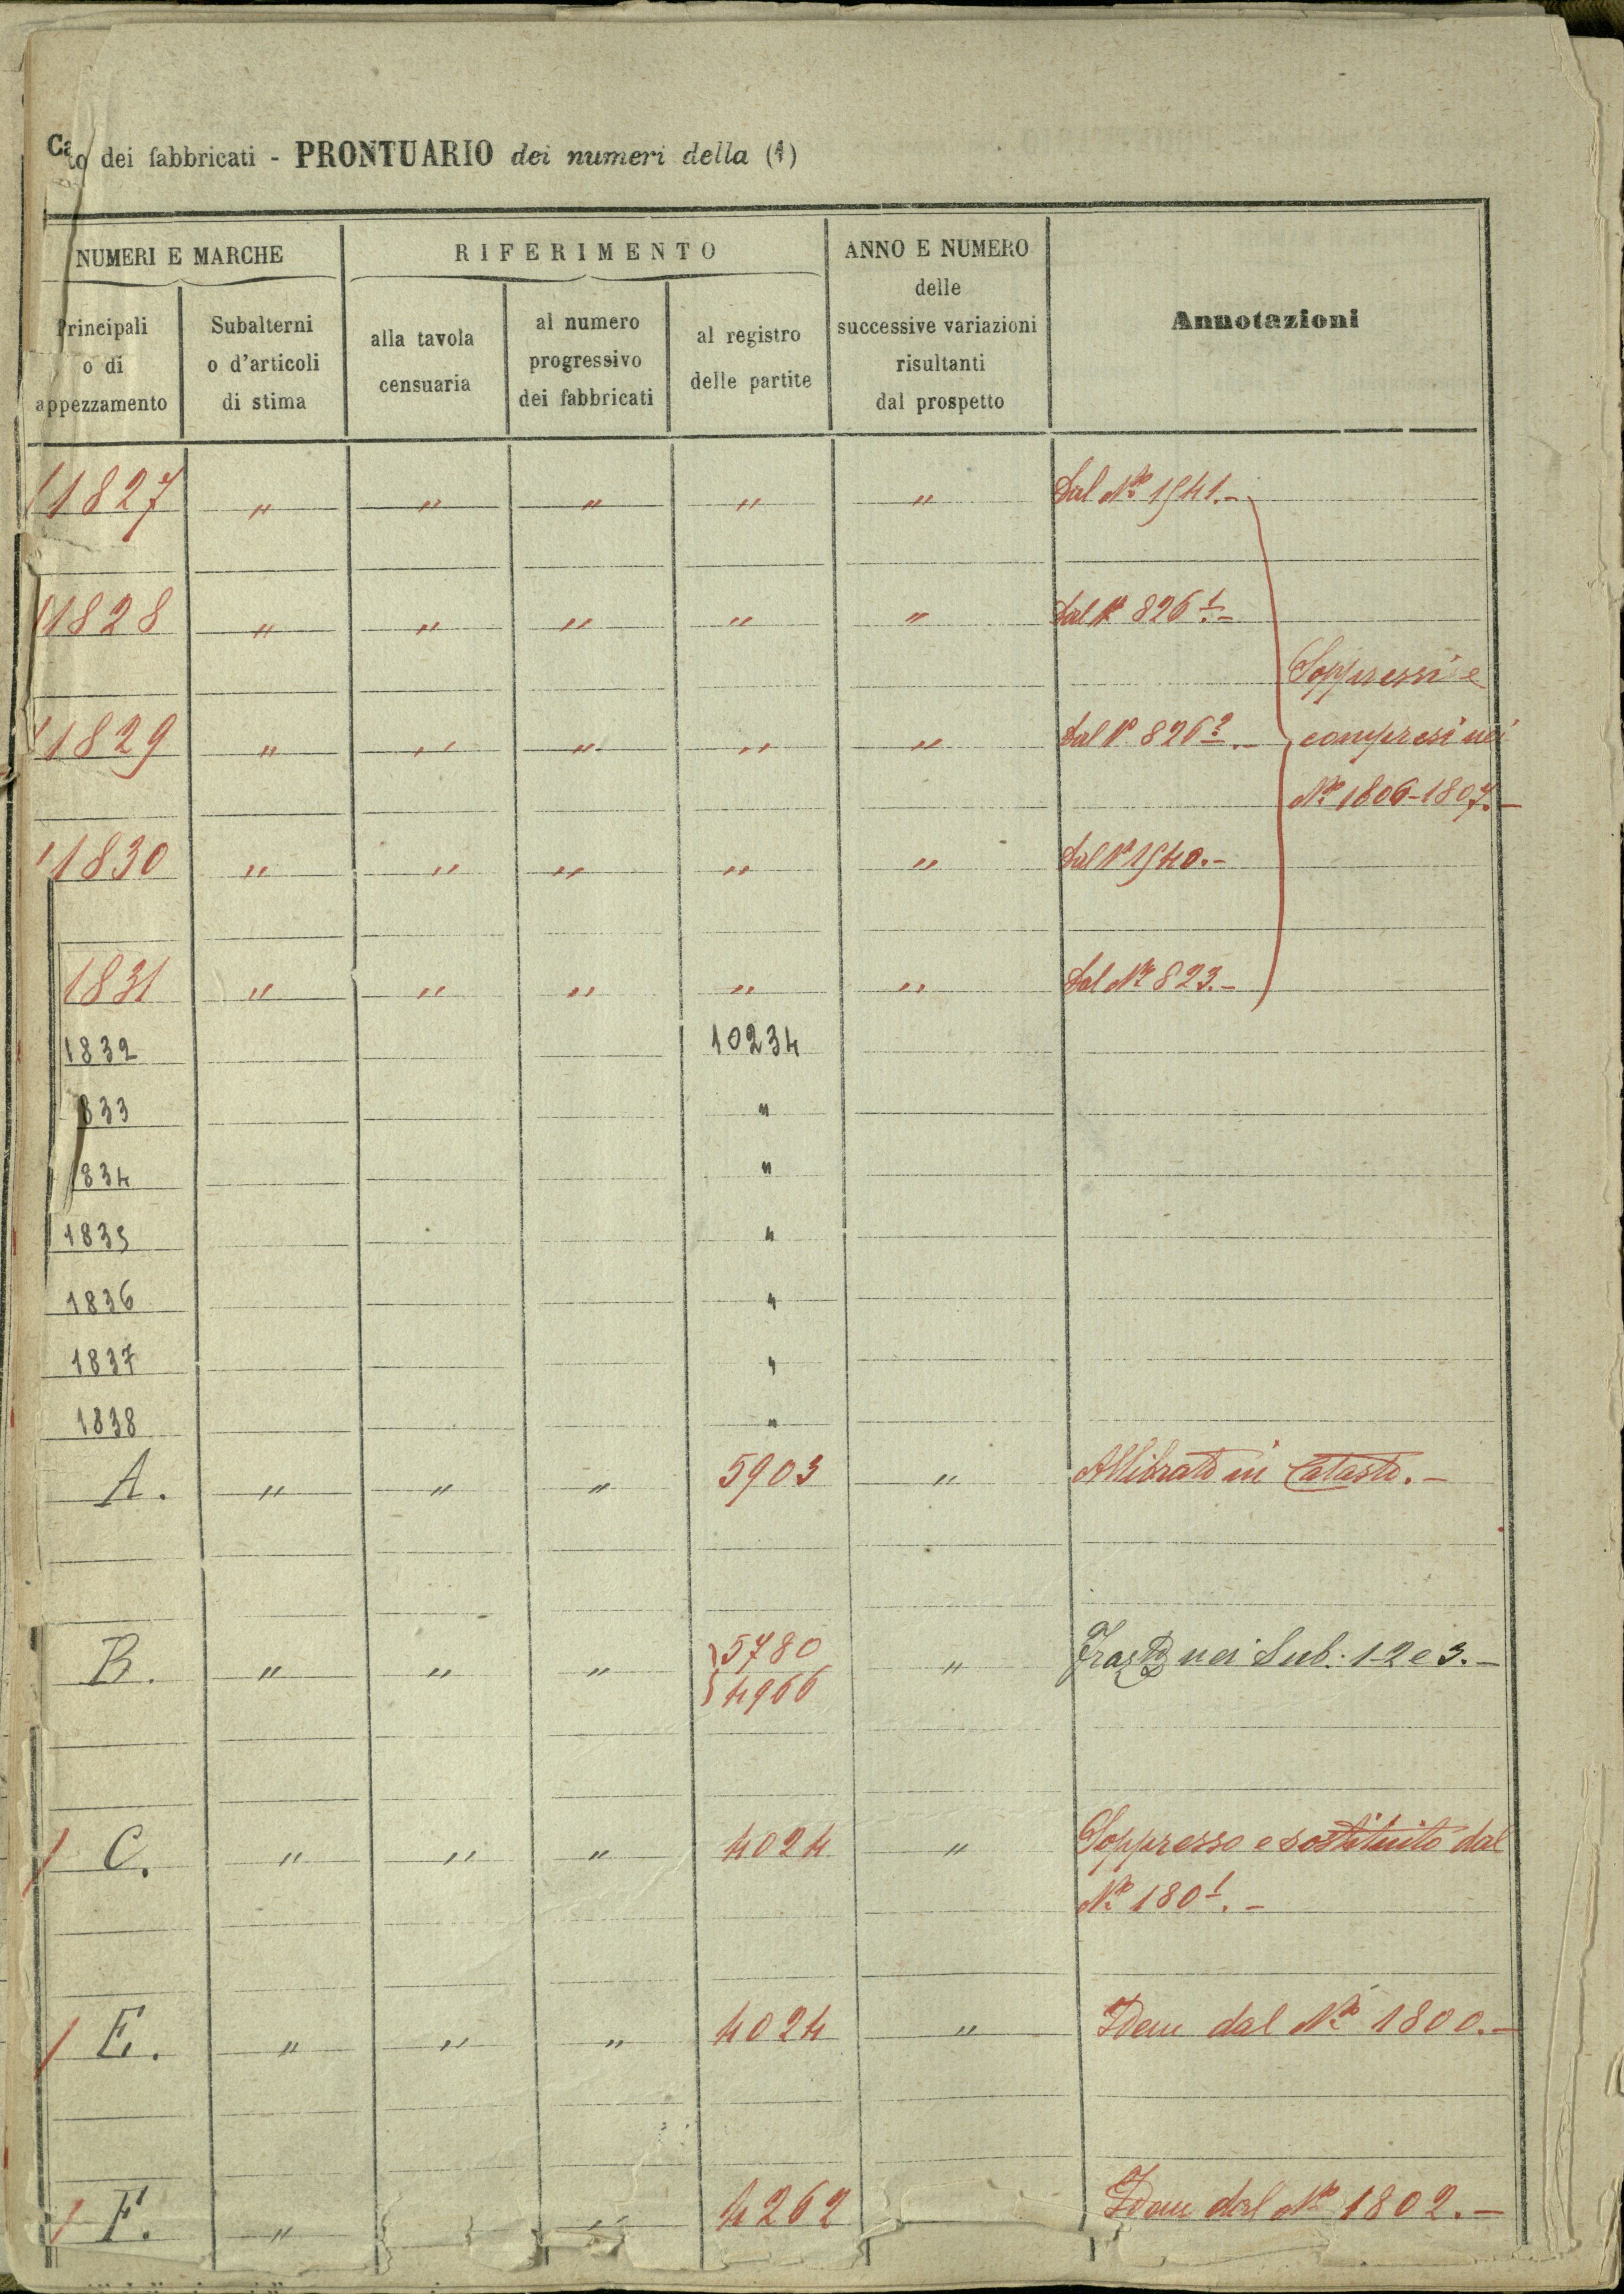 Ca to dei fabbricati - PRONTUARIO dei numeri della (1)
NUMERI E MARCHE
RIFERIMENTO
ANNO E NUMERO
delle
successive variazioni
risultanti
dal prospetto
Annotazioni
Principali
o di
appezzamento
Subalterni
o d'articoli
di stima
alla tavola
censuaria
al numero
progressivo
dei fabbricati
al registro
delle partite
1827 " " " " " Dal No 1541.-
1828 " " " " " Dal No 826 1.-
Soppressi e
1829 " " " " " Dal No 826 2.- compresi nei
No 1806-1807.-
1830 " " " " " Dal No 1540.-
1831 " " " " " Dal No 823.-
1832 10234
833 "
1834 "
1835 "
1836 "
1837 "
1838 "
A. " " " 5903 " Allibrato in Catasto.-
B. " " " 5780 4966 " nei Sub. 1-2 e 3.-
C. " " " 4024 " Soppresso e sostituito dal
No 180 1.-
E. " " " 4024 " Idem dal No 1800.-
F. " " 4262 Idem dal No 1802.-